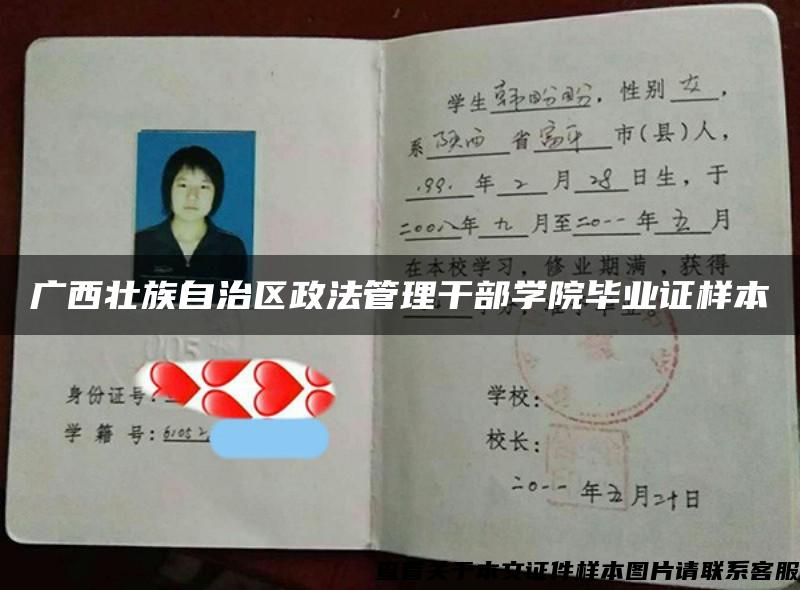 学生韩盼盼，性别女，
系陕西省富平市(县)人，
1991年2月28日生，于
二00八年九月至二0一一年五月
在本校学习，修业期满，获得
广西壮族自治区政法管理干部学院毕业证样本
005
身份证号：
学籍号：61052
学校：
校长：
二0一一年五月二十日
查看关于本文证件样本图片请联系客服